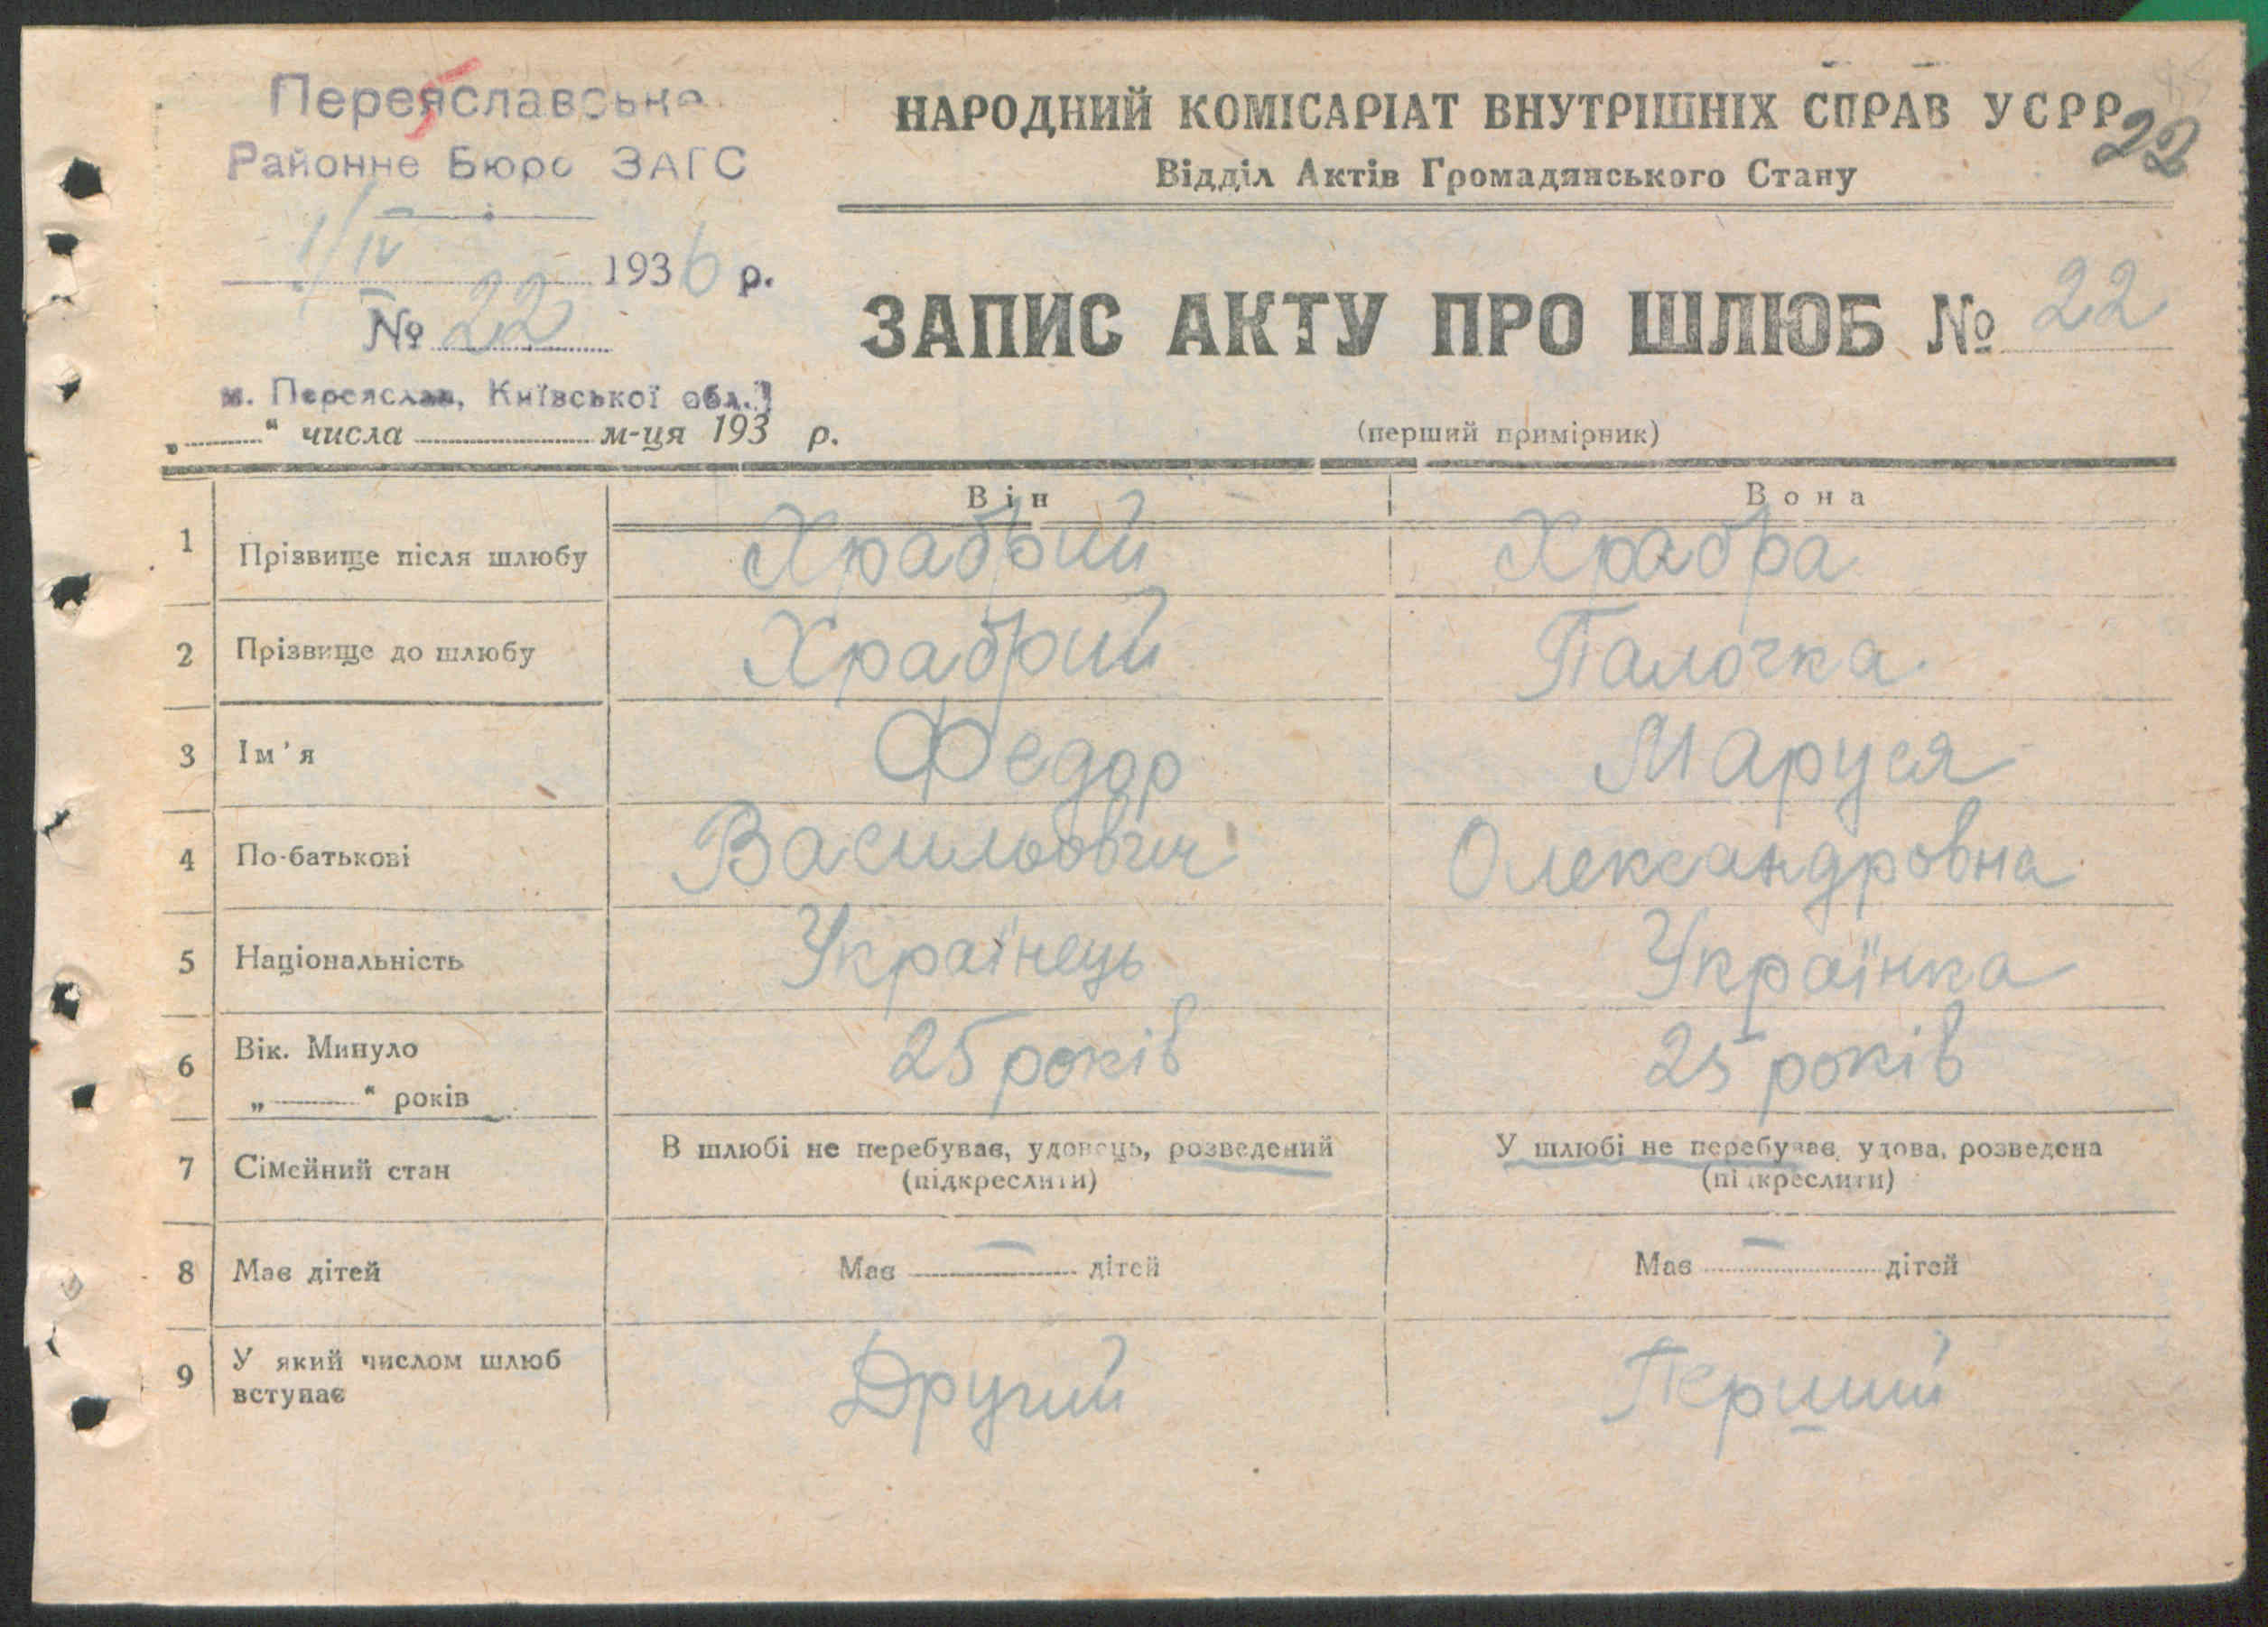 Переяславське
Районне Бюро ЗАГС
1/IV 1936 р.
№ 22
м. Переяслав, Київської обл.
„ “ числа м-ця 193 р.
НАРОДНИЙ КОМІСАРІАТ ВНУТРІШНІХ СПРАВ УСРР
22
Відділ Актів Громадянського Стану
ЗАПИС АКТУ ПРО ШЛЮБ № 22
(перший примірник)
Він Вона
1 Прізвище після шлюбу Храбрий Храбра
2 Прізвище до шлюбу Храбрий Палочка
3 Ім'я Федор Маруся
4 По-батькові Васильович Олександровна
5 Національність Українець Українка
6 Вік. Минуло
„ “ років 25 років 25 років
7 Сімейний стан В шлюбі не перебував, удовець, розведений У шлюбі не перебував, удова, розведена
(підкреслити) (підкреслити)
8 Має дітей Має — дітей Має — дітей
9 У який числом шлюб
вступає Другий Перший